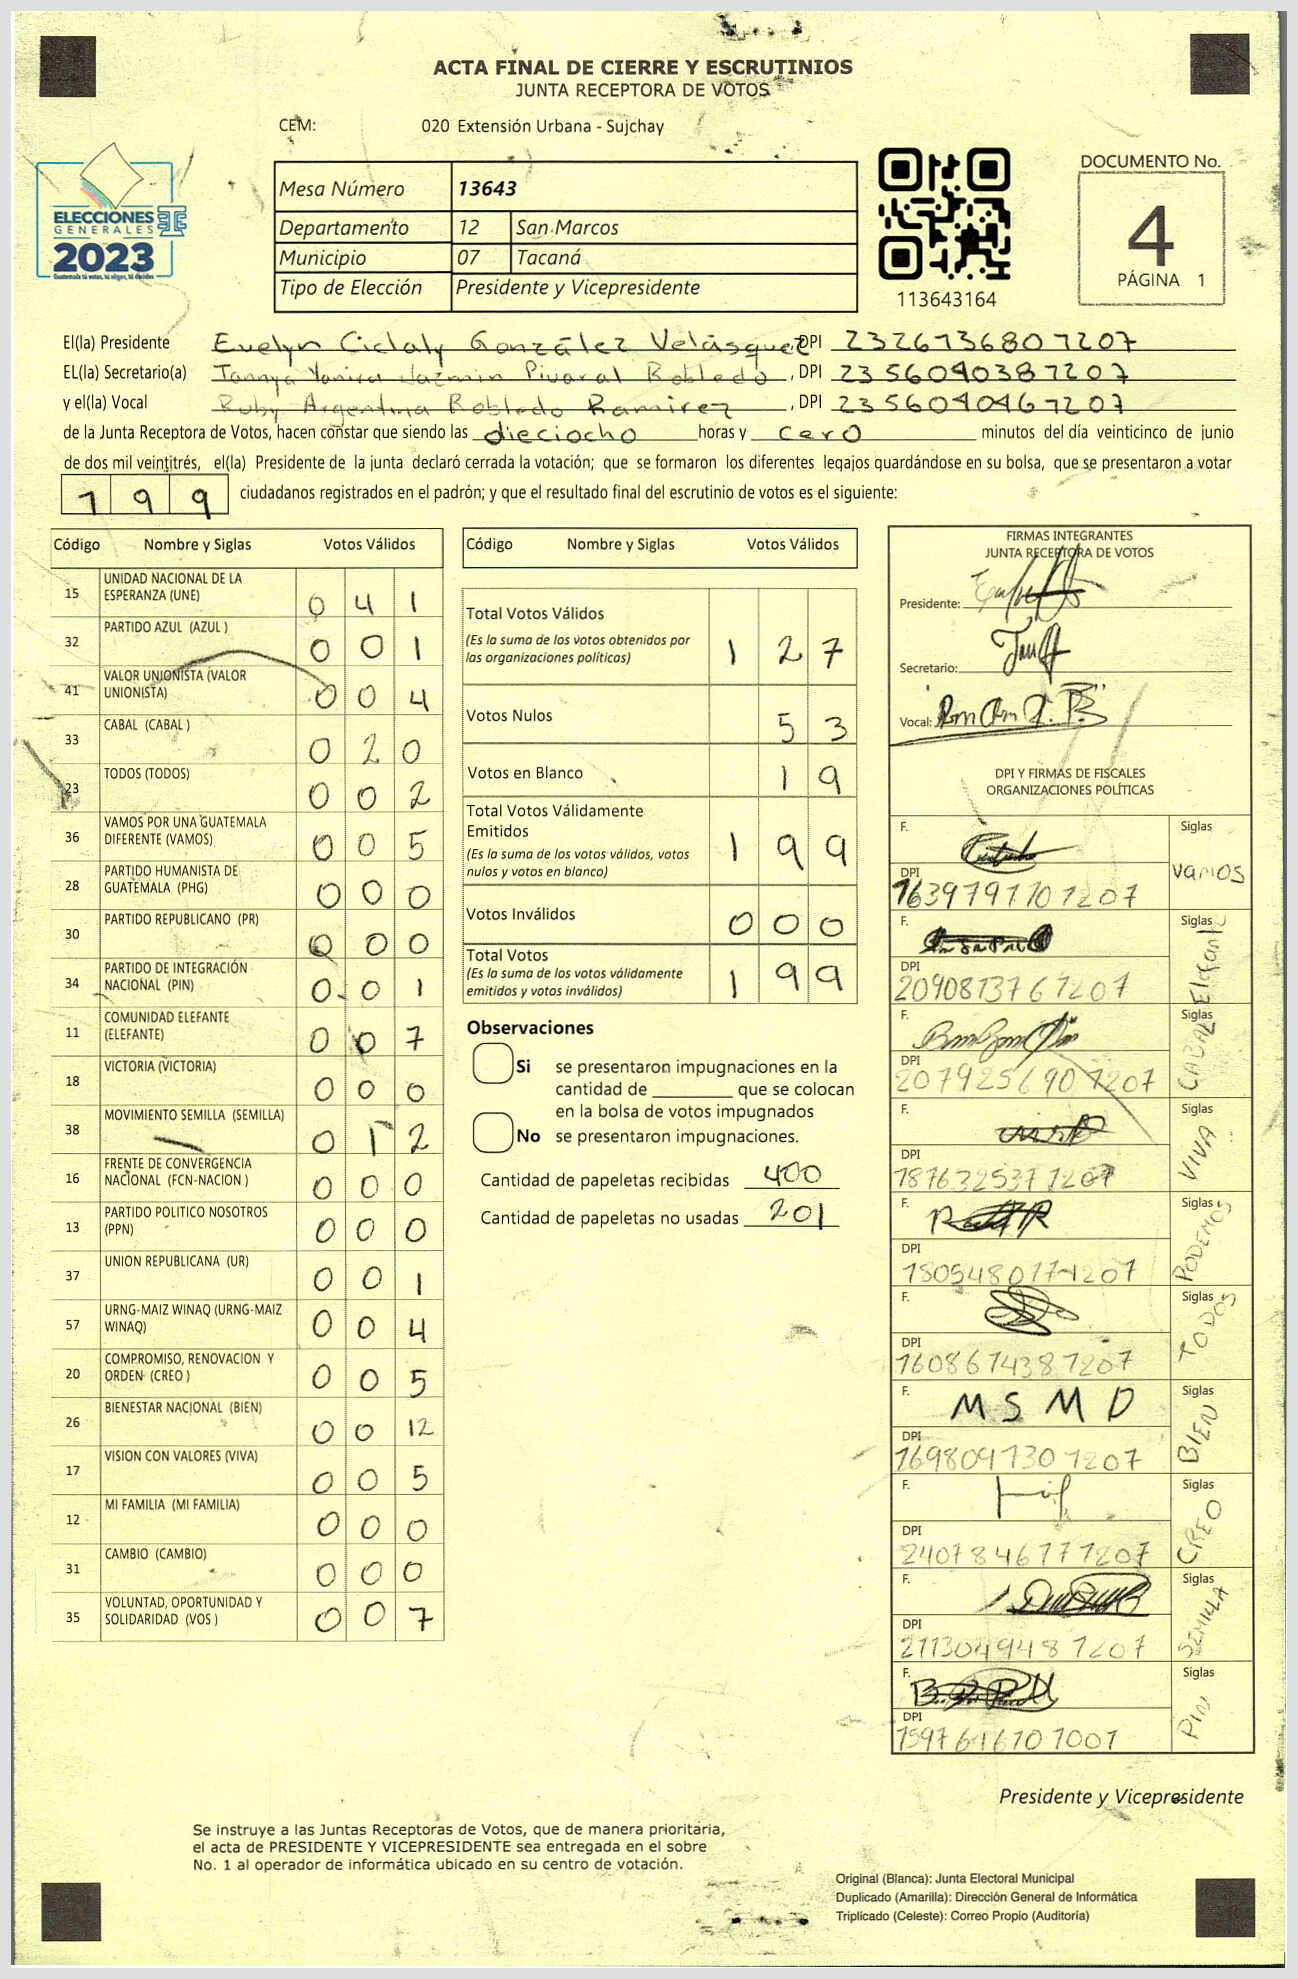 ACTA FINAL DE CIERRE Y ESCRUTINIOS
JUNTA RECEPTORA DE VOTOS
CEM: 020 Extensión Urbana - Sujchay
ELECCIONES
GENERALES
2023
Guatemala tú votas, tú eliges, tú decides
Mesa Número 13643
Departamento 12 San Marcos
Municipio 07 Tacaná
Tipo de Elección Presidente y Vicepresidente
113643164
DOCUMENTO No.
4
PÁGINA 1
El(la) Presidente Evelyn Cidaly González Velásquez DPI 2326736801207
EL(la) Secretario(a) Tannya Yanira Jazmin Pivaral Robledo, DPI 2356040381207
y el(la) Vocal Ruby Argentina Robledo Ramirez, DPI 2356040461207
de la Junta Receptora de Votos, hacen constar que siendo las dieciocho horas y cero minutos del día veinticinco de junio
de dos mil veintitrés, el(la) Presidente de la junta declaró cerrada la votación; que se formaron los diferentes legajos guardándose en su bolsa, que se presentaron a votar
199 ciudadanos registrados en el padrón; y que el resultado final del escrutinio de votos es el siguiente:
Código Nombre y Siglas Votos Válidos
15 UNIDAD NACIONAL DE LA ESPERANZA (UNE) 0 4 1
32 PARTIDO AZUL (AZUL ) 0 0 1
41 VALOR UNIONISTA (VALOR UNIONISTA) 0 0 4
33 CABAL (CABAL ) 0 2 0
23 TODOS (TODOS) 0 0 2
36 VAMOS POR UNA GUATEMALA DIFERENTE (VAMOS) 0 0 5
28 PARTIDO HUMANISTA DE GUATEMALA (PHG) 0 0 0
30 PARTIDO REPUBLICANO (PR) 0 0 0
34 PARTIDO DE INTEGRACIÓN NACIONAL (PIN) 0 0 1
11 COMUNIDAD ELEFANTE (ELEFANTE) 0 0 7
18 VICTORIA (VICTORIA) 0 0 0
38 MOVIMIENTO SEMILLA (SEMILLA) 0 1 2
16 FRENTE DE CONVERGENCIA NACIONAL (FCN-NACION ) 0 0 0
13 PARTIDO POLITICO NOSOTROS (PPN) 0 0 0
37 UNION REPUBLICANA (UR) 0 0 1
57 URNG-MAIZ WINAQ (URNG-MAIZ WINAQ) 0 0 4
20 COMPROMISO, RENOVACION Y ORDEN (CREO ) 0 0 5
26 BIENESTAR NACIONAL (BIEN) 0 0 12
17 VISION CON VALORES (VIVA) 0 0 5
12 MI FAMILIA (MI FAMILIA) 0 0 0
31 CAMBIO (CAMBIO) 0 0 0
35 VOLUNTAD, OPORTUNIDAD Y SOLIDARIDAD (VOS ) 0 0 7
Código Nombre y Siglas Votos Válidos
Total Votos Válidos 1 2 7
(Es la suma de los votos obtenidos por
las organizaciones políticas)
Votos Nulos 5 3
Votos en Blanco 1 9
Total Votos Válidamente
Emitidos 1 9 9
(Es la suma de los votos válidos, votos
nulos y votos en blanco)
Votos Inválidos 0 0 0
Total Votos 1 9 9
(Es la suma de los votos válidamente
emitidos y votos inválidos)
Observaciones
Si se presentaron impugnaciones en la
cantidad de ________ que se colocan
en la bolsa de votos impugnados
No se presentaron impugnaciones.
Cantidad de papeletas recibidas 400
Cantidad de papeletas no usadas 201
FIRMAS INTEGRANTES
JUNTA RECEPTORA DE VOTOS
Presidente:
Secretario:
Vocal:
DPI Y FIRMAS DE FISCALES
ORGANIZACIONES POLÍTICAS
F. Siglas
DPI Vamos
1639797701207
F. Siglas
DPI Elefante
2090813761207
F. Siglas
DPI CABAL
2079256901207
F. Siglas
DPI VIVA
1876325371207
F. Siglas
DPI PODEMOS
1805480171207
F. Siglas
DPI TODOS
1608674381207
F. MSMD Siglas
DPI BIEN
1698091301207
F. Siglas
DPI CREO
2407846771207
F. Siglas
DPI SEMILLA
2113049481207
F. Siglas
DPI PIN
Presidente y Vicepresidente
Se instruye a las Juntas Receptoras de Votos, que de manera prioritaria,
el acta de PRESIDENTE Y VICEPRESIDENTE sea entregada en el sobre
No. 1 al operador de informática ubicado en su centro de votación.
Original (Blanca): Junta Electoral Municipal
Duplicado (Amarilla): Dirección General de Informática
Triplicado (Celeste): Correo Propio (Auditoría)